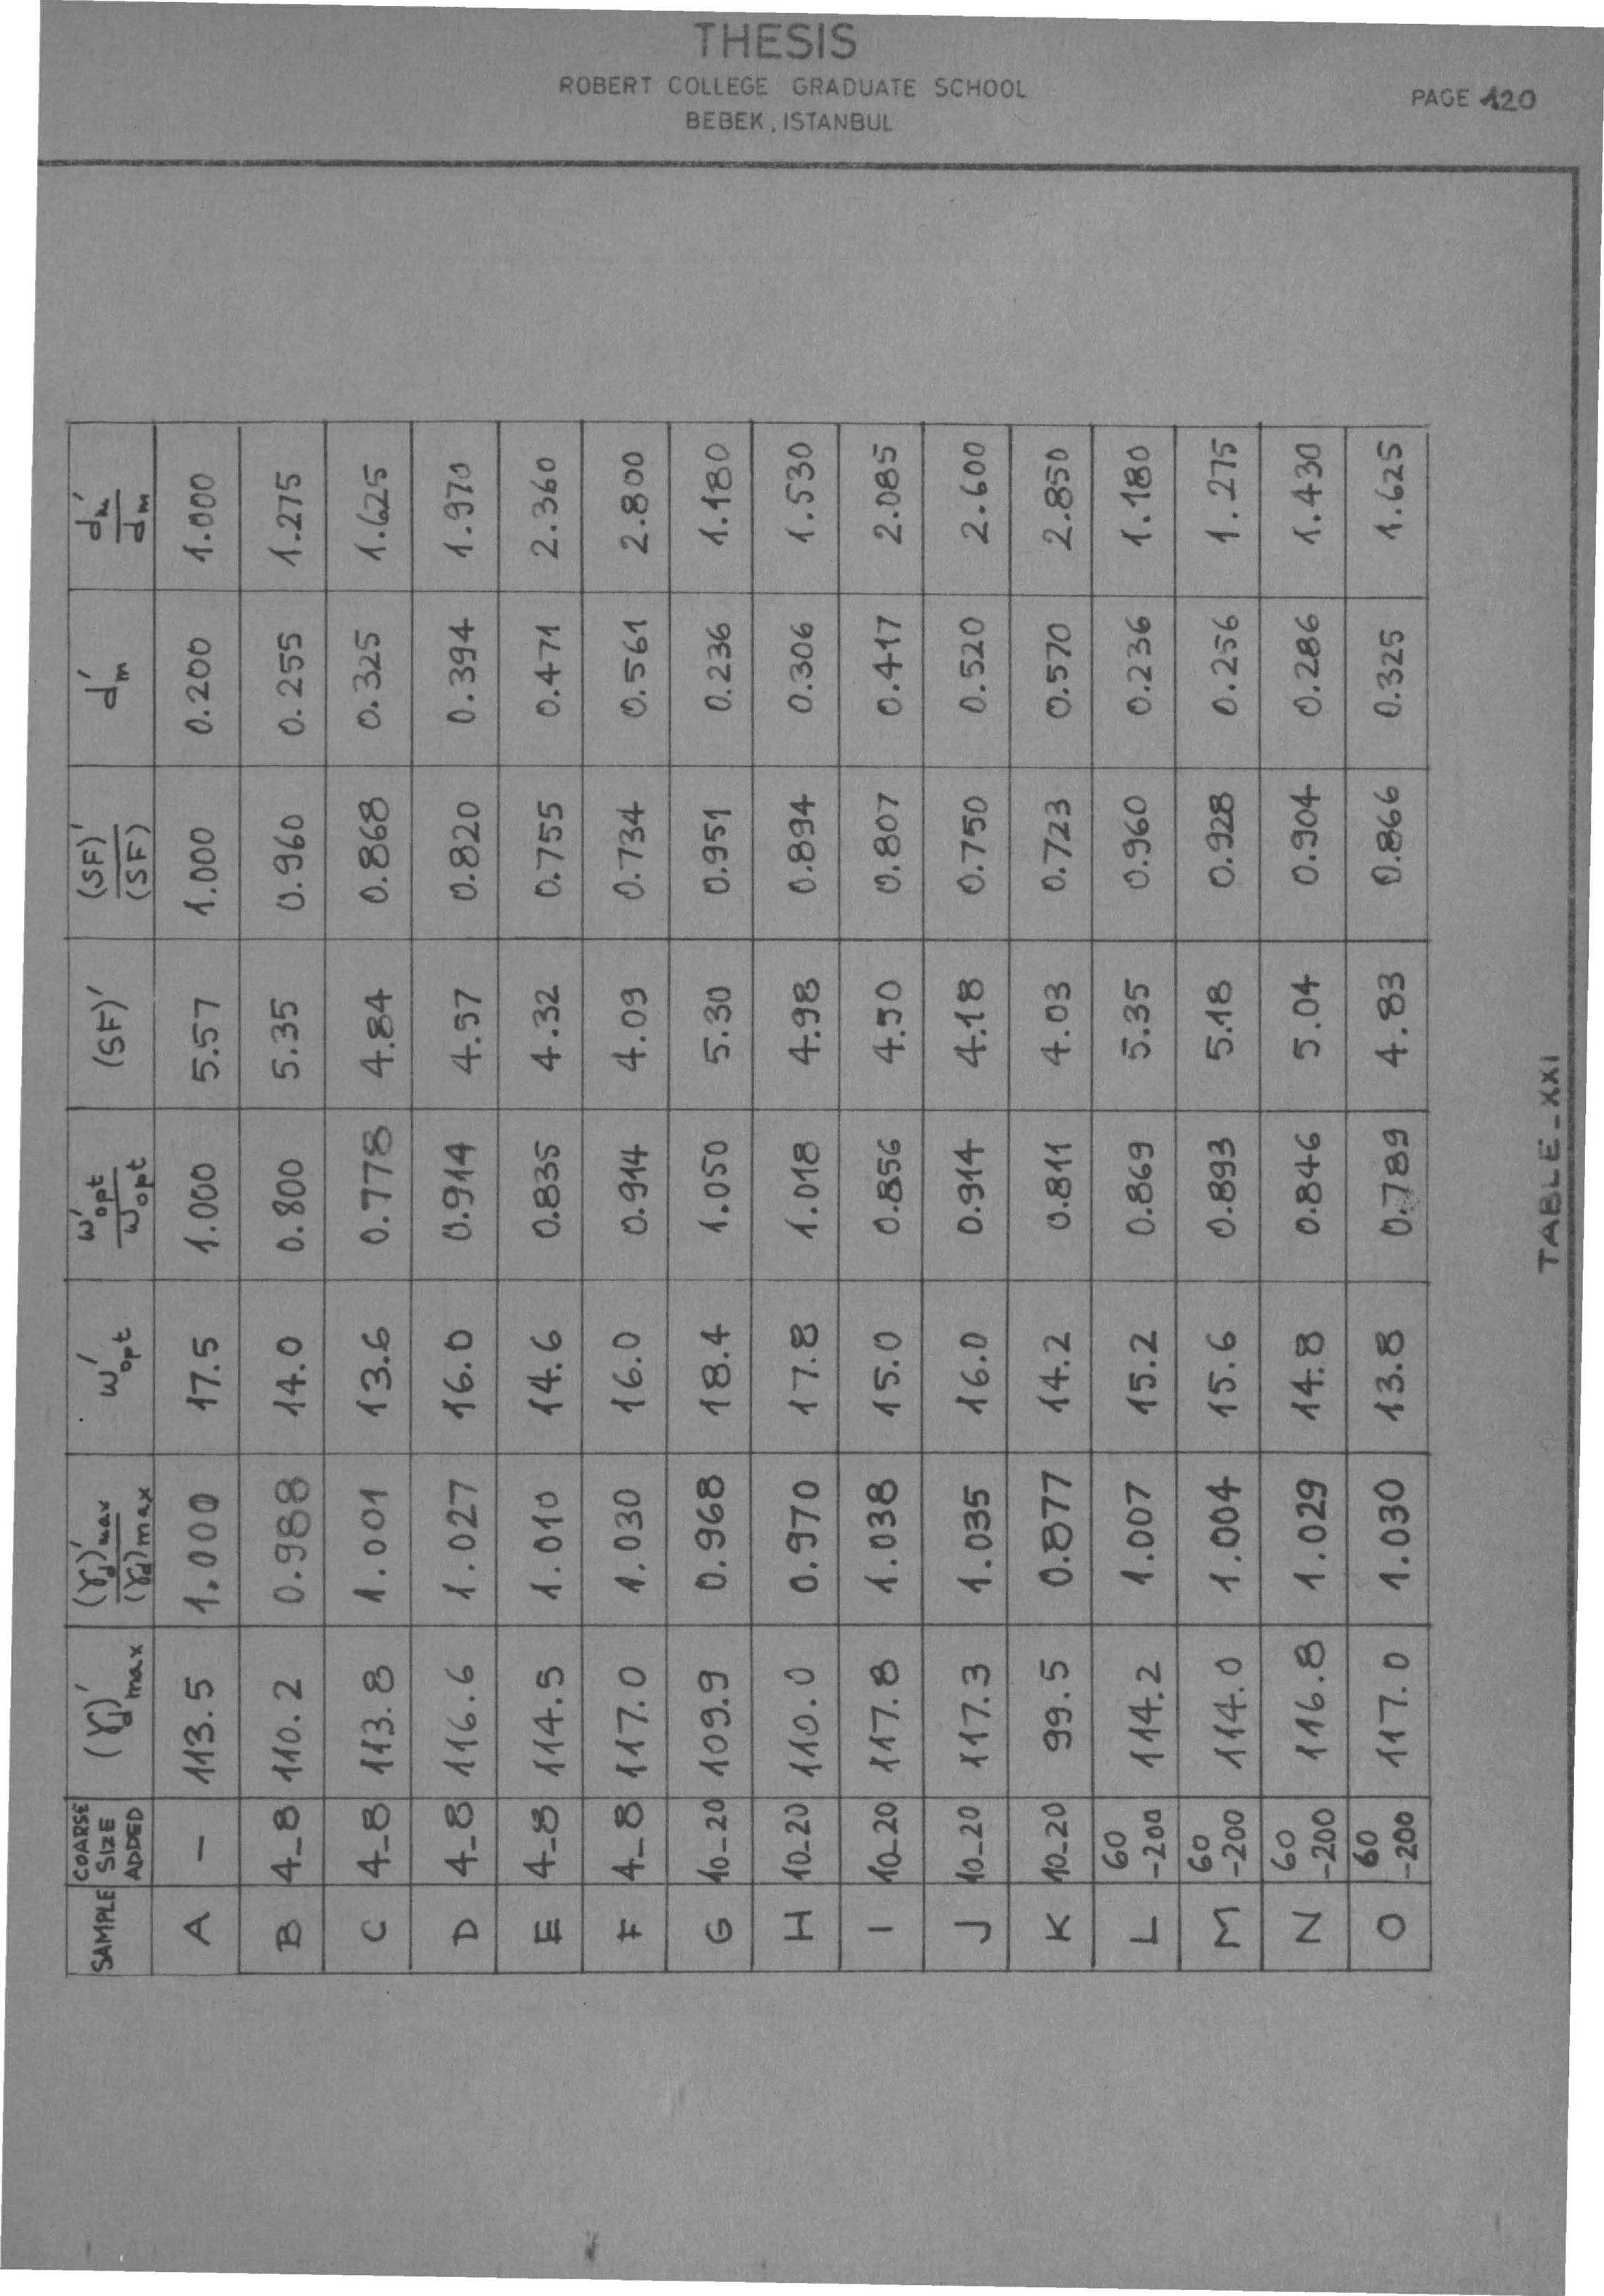 THESIS
ROBERT COLLEGE GRADUATE SCHOOL
BEBEK, ISTANBUL
PAGE 120
SAMPLE | COARSE SIZE ADDED | (γd)'max | (γd)'max / (γd)max | w'opt | w'opt / wopt | (SF)' | (SF)' / (SF) | d'm | d'm / dm
A | – | 113.5 | 1.000 | 17.5 | 1.000 | 5.57 | 1.000 | 0.200 | 1.000
B | 4_8 | 110.2 | 0.988 | 14.0 | 0.800 | 5.35 | 0.960 | 0.255 | 1.275
C | 4_8 | 113.8 | 1.001 | 13.6 | 0.778 | 4.84 | 0.868 | 0.325 | 1.625
D | 4_8 | 116.6 | 1.027 | 16.0 | 0.914 | 4.57 | 0.820 | 0.394 | 1.970
E | 4_8 | 114.5 | 1.010 | 14.6 | 0.835 | 4.32 | 0.755 | 0.471 | 2.360
F | 4_8 | 117.0 | 1.030 | 16.0 | 0.914 | 4.09 | 0.734 | 0.561 | 2.800
G | 10_20 | 109.9 | 0.968 | 18.4 | 1.050 | 5.30 | 0.951 | 0.236 | 1.180
H | 10_20 | 110.0 | 0.970 | 17.8 | 1.018 | 4.98 | 0.894 | 0.306 | 1.530
I | 10_20 | 117.8 | 1.038 | 15.0 | 0.856 | 4.50 | 0.807 | 0.417 | 2.085
J | 10_20 | 117.3 | 1.035 | 16.0 | 0.914 | 4.18 | 0.750 | 0.520 | 2.600
K | 10_20 | 99.5 | 0.877 | 14.2 | 0.811 | 4.03 | 0.723 | 0.570 | 2.850
L | 60 -200 | 114.2 | 1.007 | 15.2 | 0.869 | 5.35 | 0.960 | 0.236 | 1.180
M | 60 -200 | 114.0 | 1.004 | 15.6 | 0.893 | 5.18 | 0.928 | 0.256 | 1.275
N | 60 -200 | 116.8 | 1.029 | 14.8 | 0.846 | 5.04 | 0.904 | 0.286 | 1.430
O | 60 -200 | 117.0 | 1.030 | 13.8 | 0.789 | 4.83 | 0.866 | 0.325 | 1.625
TABLE_XXI